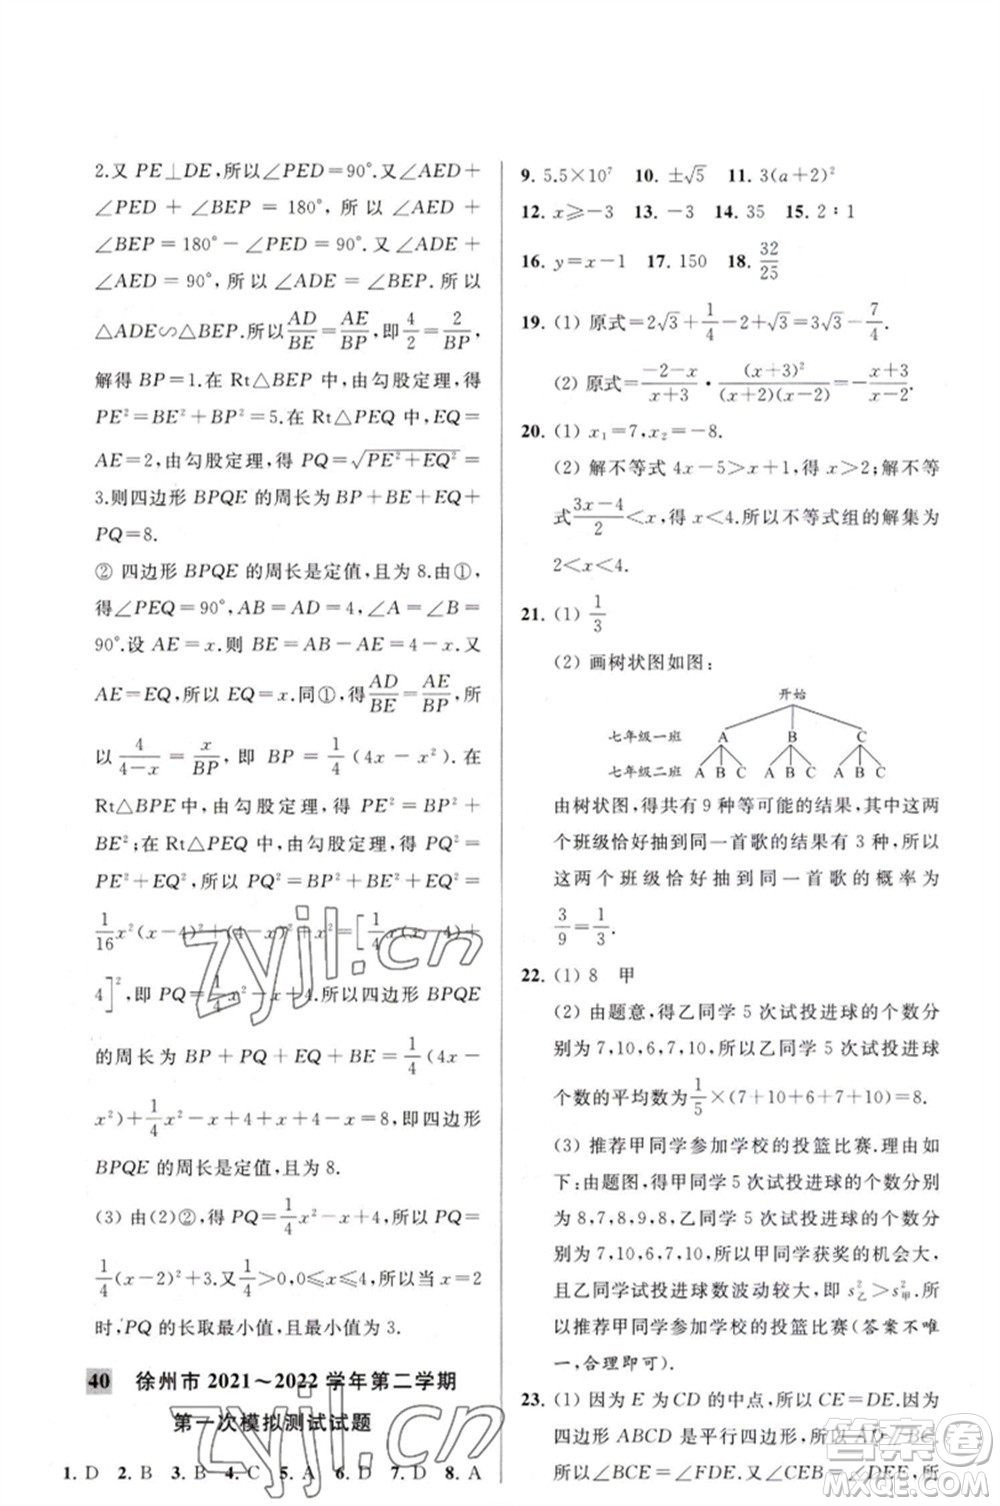 2.又 PE⊥DE,所以∠PED=90°.又∠AED+
∠PED + ∠BEP = 180°, 所以 ∠AED +
∠BEP=180°-∠PED=90°.又∠ADE+
∠AED=90°,所以∠ADE=∠BEP.所以
△ADE∽△BEP.所以AD/BE=AE/BP,即4/2=2/BP,
解得 BP=1.在 Rt△BEP 中,由勾股定理,得
PE²=BE²+BP²=5.在 Rt△PEQ 中,EQ=
AE=2,由勾股定理,得 PQ=√(PE²+EQ²)=
3.则四边形 BPQE 的周长为 BP+BE+EQ+
PQ=8.
② 四边形 BPQE 的周长是定值,且为 8.由①,
得∠PEQ=90°,AB=AD=4,∠A=∠B=
90°.设 AE=x.则 BE=AB-AE=4-x.又
AE=EQ,所以 EQ=x.同①,得AD/BE=AE/BP,所
以 4/(4-x) = x/BP, 即 BP = 1/4 (4x - x²). 在
Rt△BPE 中,由勾股定理,得 PE² = BP² +
BE²;在 Rt△PEQ 中,由勾股定理,得 PQ²=
PE²+EQ².所以 PQ² = BP² + BE² + EQ² =
1/16 x²(x-4)²+(4-x)²+x²=[1/4 x(x-4)+
4]²,即 PQ=1/4 x²-x+4.所以四边形 BPQE
的周长为 BP + PQ + EQ + BE = 1/4 (4x -
x²)+1/4 x²-x+4+x+4-x=8,即四边形
BPQE 的周长是定值,且为 8.
(3) 由(2)②,得 PQ=1/4 x²-x+4,所以 PQ=
1/4 (x-2)²+3.又1/4>0,0≤x≤4,所以当 x=2
时,PQ 的长取最小值,且最小值为 3.
40 徐州市 2021～2022 学年第二学期
第一次模拟测试试题
1. D 2. B 3. B 4. C 5. A 6. D 7. D 8. A
9. 5.5×10⁷ 10. ±√5 11. 3(a+2)²
12. x≥-3 13. -3 14. 35 15. 2∶1
16. y=x-1 17. 150 18. 32/25
19. (1) 原式=2√3+1/4-2+√3=3√3-7/4.
(2) 原式=(-2-x)/(x+3)·(x+3)²/((x+2)(x-2))=-(x+3)/(x-2).
20. (1) x₁=7,x₂=-8.
(2) 解不等式 4x-5>x+1,得 x>2.解不等
式(3x-4)/2<x,得 x<4.所以不等式组的解集为
2<x<4.
21. (1) 1/3
(2) 画树状图如图:
开始
七年级一班 A B C
七年级二班 A B C A B C A B C
由树状图,得共有 9 种等可能的结果,其中这两
个班级恰好抽到同一首歌的结果有 3 种,所以
这两个班级恰好抽到同一首歌的概率为
3/9=1/3.
22. (1) 8 甲
(2) 由题意,得乙同学 5 次试投进球的个数分
别为 7,10,6,7,10,所以乙同学 5 次试投进球
个数的平均数为1/5×(7+10+6+7+10)=8.
(3) 推荐甲同学参加学校的投篮比赛.理由如
下:由题意,得甲同学 5 次试投进球的个数分别
为 8,7,8,9,8,乙同学 5 次试投进球的个数分
别为 7,10,6,7,10,所以甲同学获奖的机会大,
且乙同学试投进球数波动较大,即 s²乙>s²甲.所
以推荐甲同学参加学校的投篮比赛(答案不唯
一,合理即可).
23. (1) 因为 E 为 CD 的中点,所以 CE=DE.因
为四边形 ABCD 是平行四边形,所以 AD∥BC.
所以∠BCE=∠FDE.又∠CEB=∠DEF,所
zyjl.cn
zyjl.cn
答案圈
MXQE.COM